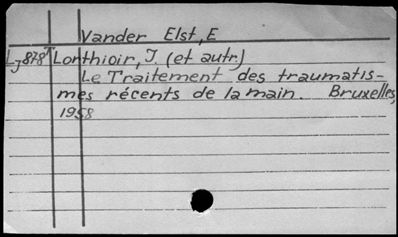 Vander Elst, E
LJ878T Lorthioir, J. (et autr.)
Le Traitement des traumatis-
mes récents de la main. Bruxelles,
1958